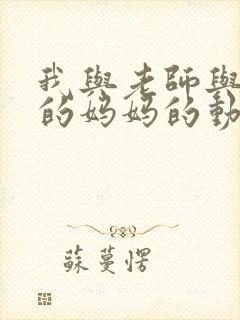 我與老師與
的媽媽的動
蘇蔓愣